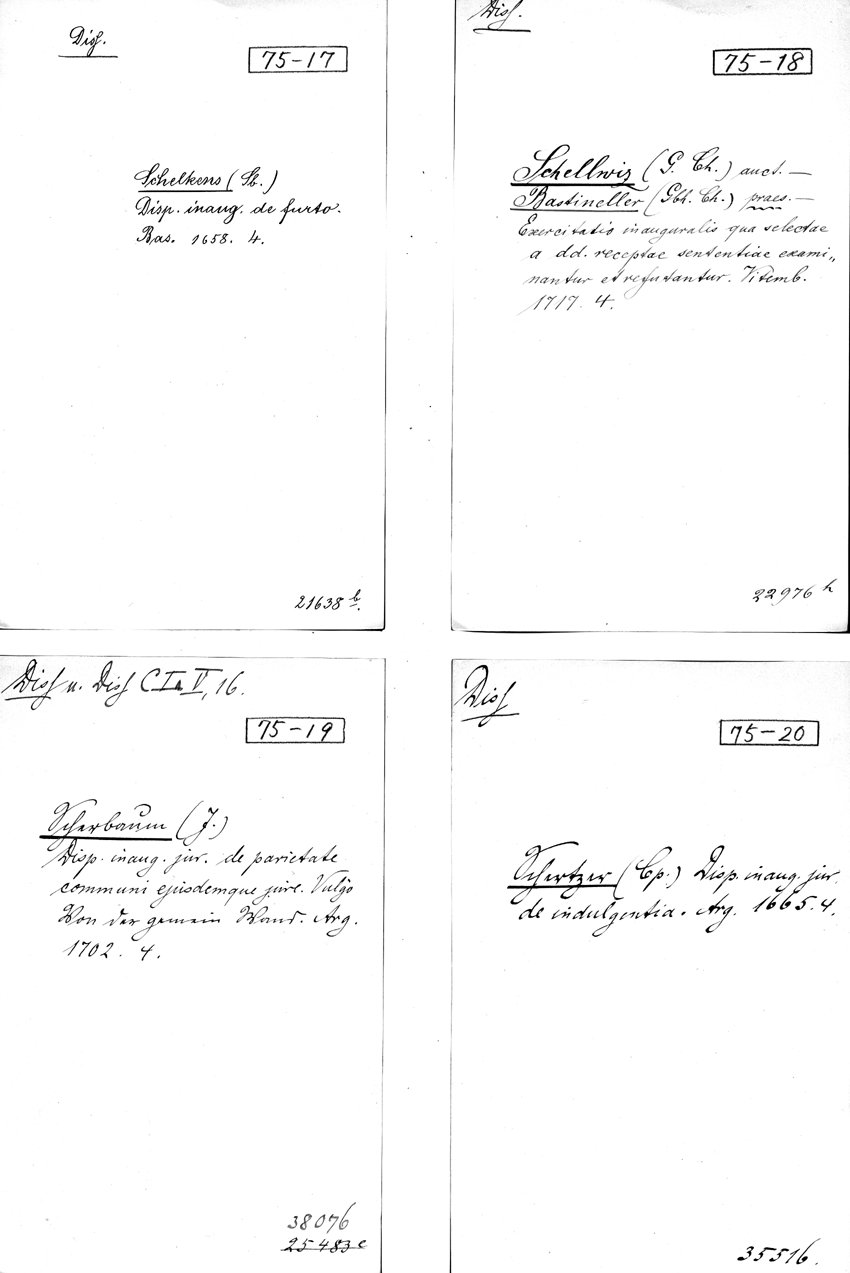 Diss.
75-17
Schelkens (Sb.)
Disp. inaug. de furto.
Bas. 1658. 4.
21638 b.
Diss.
75-18
Schellwiz (G. Ch.) auct. —
Bastineller (Gbh. Ch.) praes. —
Exercitatio inauguralis qua selectae
a dd. receptae sententiae exami„
nantur et refutantur. Vitemb.
1717. 4.
22976 h
Diss u. Diss C I a V, 16.
75-19
Scherbaum (J.)
Disp. inaug. jur. de parietate
communi ejusdemque jure. Vulgò
Von der gemein Wand. Arg.
1702. 4.
38076
25483 c
Diss
75-20
Schertzer (Cp.) Disp. inaug. jur.
de indulgentia. Arg. 1665. 4.
35516.